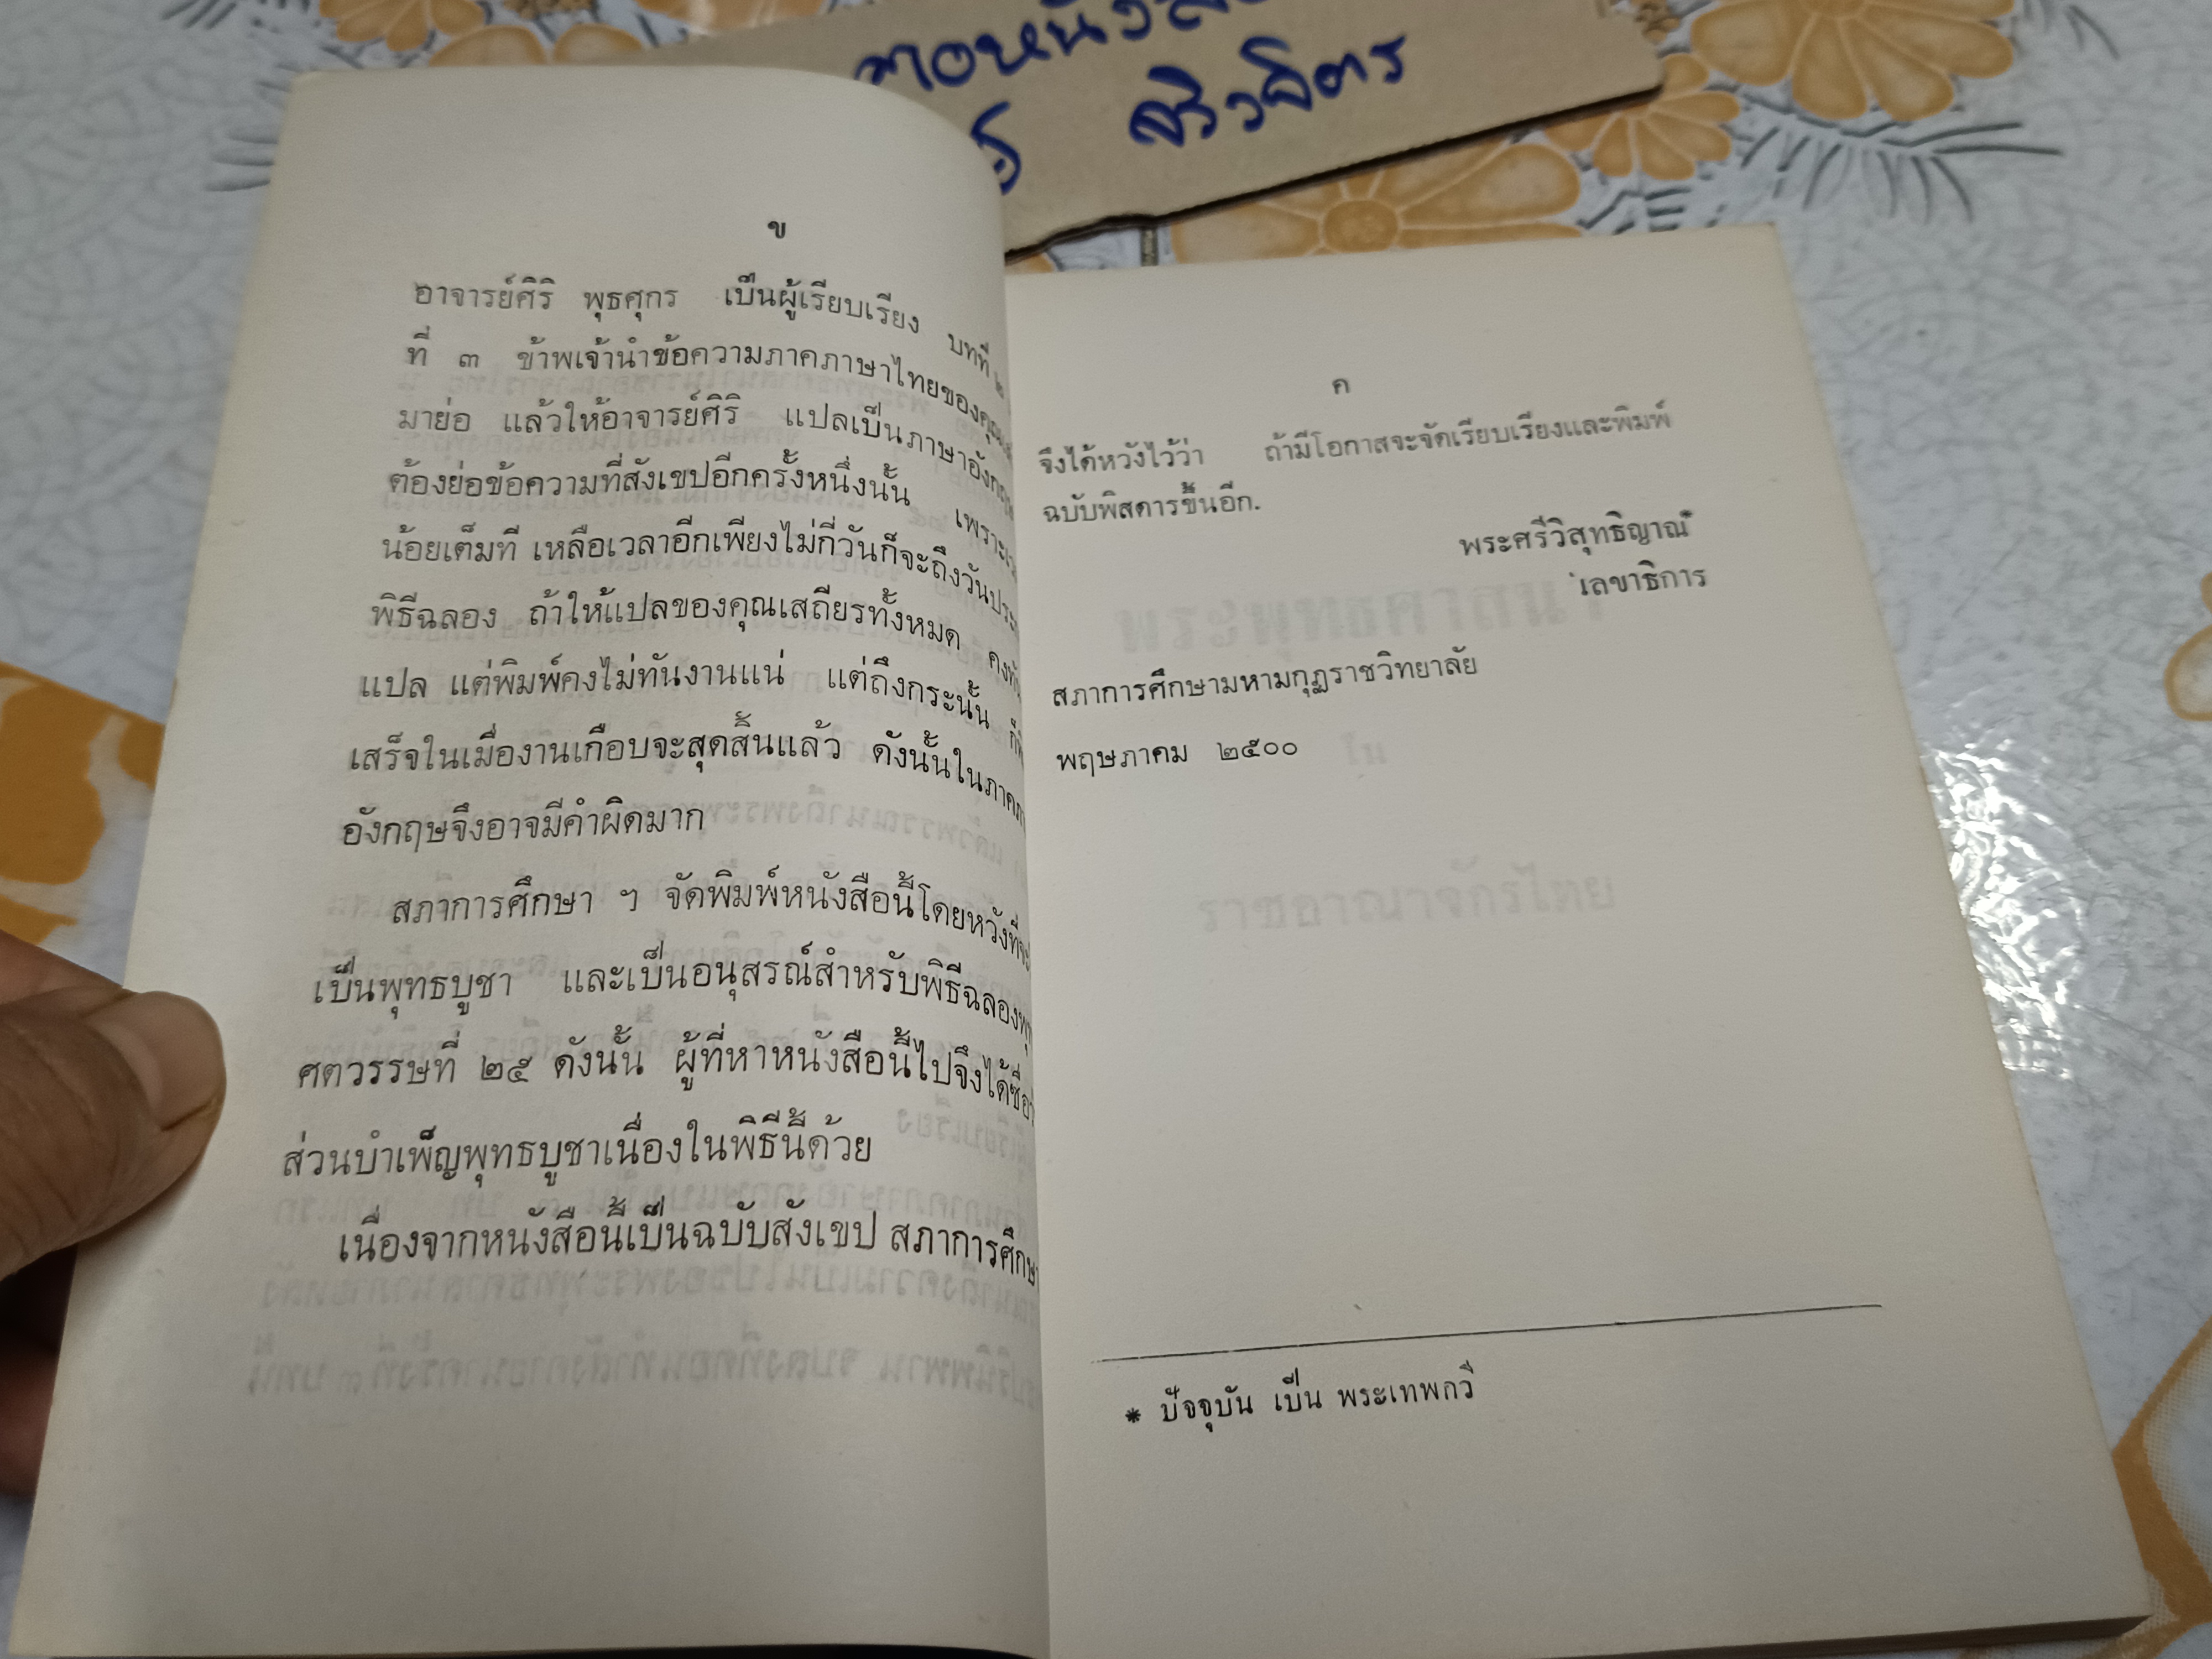 ศิวจิตร
ข
อาจารย์ศิริ พุธศุกร เป็นผู้เรียบเรียง บทที่ ๒
ที่ ๓ ข้าพเจ้านำข้อความภาคภาษาไทยของคุณ
มาย่อ แล้วให้อาจารย์ศิริ แปลเป็นภาษาอังกฤษ
ต้องย่อข้อความที่สังเขปอีกครั้งหนึ่งนั้น
น้อยเต็มที เหลือเวลาอีกเพียงไม่กี่วันก็จะถึงวัน
พิธีฉลอง ถ้าให้แปลของคุณเสถียรทั้งหมด
แปล แต่พิมพ์คงไม่ทันงานแน่ แต่ถึงกระนั้น
เสร็จในเมื่องานเกือบจะสุดสิ้นแล้ว ดังนั้นในภาค
อังกฤษจึงอาจมีคำผิดมาก
สภาการศึกษา ฯ จัดพิมพ์หนังสือนี้โดยหวังที่จะ
เป็นพุทธบูชา และเป็นอนุสรณ์สำหรับพิธีฉลอง
ศตวรรษที่ ๒๕ ดังนั้น ผู้ที่หาหนังสือนี้ไปจึงได้ชื่อ
ส่วนบำเพ็ญพุทธบูชาเนื่องในพิธีนี้ด้วย
เนื่องจากหนังสือนี้เป็นฉบับสังเขป สภาการศึกษา
ค
จึงได้หวังไว้ว่า ถ้ามีโอกาสจะจัดเรียบเรียงและพิมพ์
ฉบับพิสดารขึ้นอีก.
พระศรีวิสุทธิญาณ*
เลขาธิการ
สภาการศึกษามหามกุฏราชวิทยาลัย
พฤษภาคม ๒๕๐๐
* ปัจจุบัน เป็น พระเทพกวี